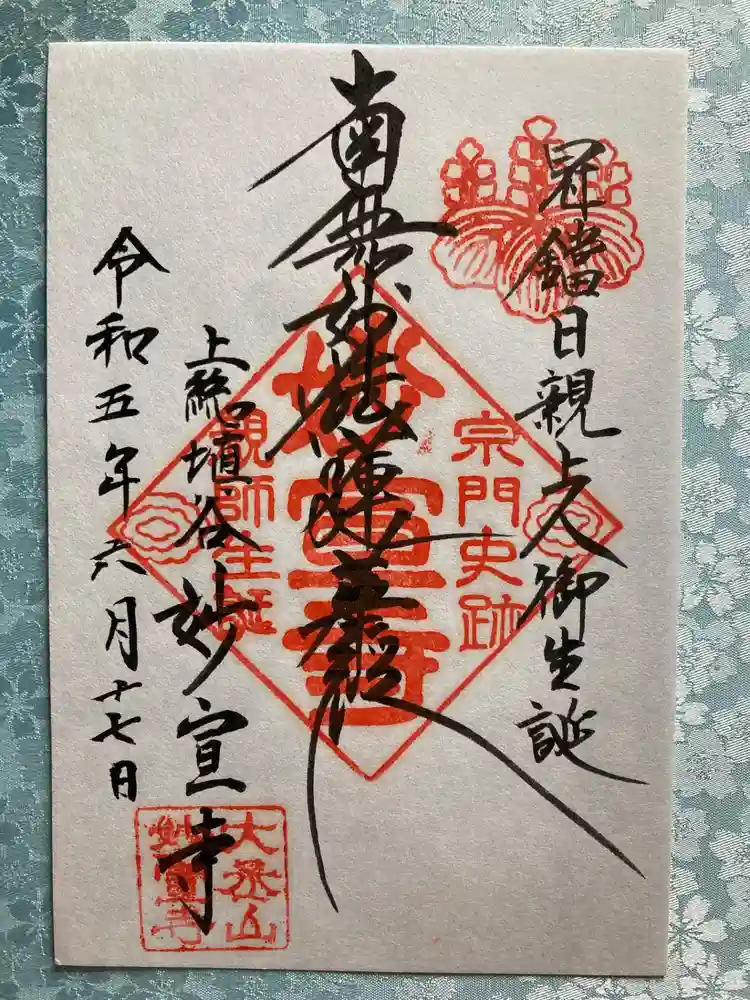 冠鐺日親上人御生誕
南無妙法蓮華経
上総埴谷妙宣寺
令和五年六月十七日
宗門史跡
妙宣寺
親師生誕
大乗山
妙宣寺